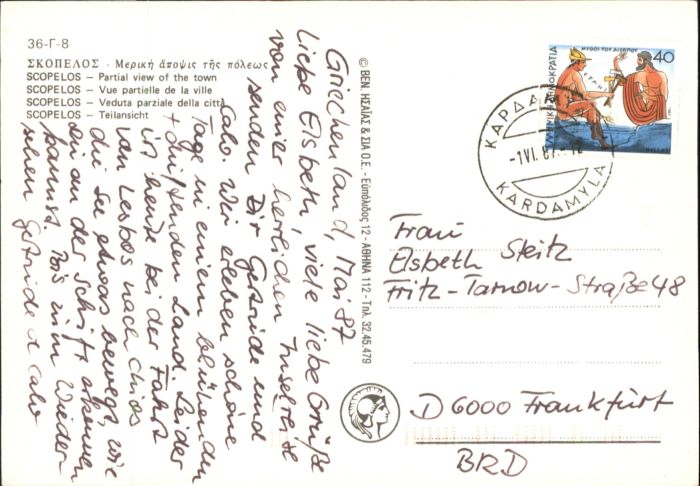 36-Γ-8
ΣΚΟΠΕΛΟΣ - Μερική ἄποψις τῆς πόλεως
SCOPELOS — Partial view of the town
SCOPELOS — Vue partielle de la ville
SCOPELOS — Veduta parziale della città
SCOPELOS — Teilansicht
Griechenland, Mai 87
Liebe Elsbeth, viele liebe Grüße
von einer herrlichen Inselreise
senden Dir Getride und
Calo. Wir erleben schöne
Tage in einem blühenden
+ duftenden Land. Leider
ist heute bei der Fahrt
von Lesbos nach Chios
die See etwas bewegt, wie
Du an der Schrift erkennen
kannst. Bis zum Wieder-
sehen Getride &
Calo
© ΒΕΝ. ΗΣΑΪΑΣ & ΣΙΑ Ο.Ε. - Εὐπόλιδος 12 - ΑΘΗΝΑ 112 - Τηλ. 32.45.479
ΜΥΘΟΙ ΤΟΥ ΑΙΣΩΠΟΥ
40
ΕΛΛΗΝΙΚΗ ΔΗΜΟΚΡΑΤΙΑ
ΕΡΜΗΣ
HELLAS
ΚΑΡΔΑ
-1VI.87
KARDAMYLA
Frau
Elsbeth Steitz
Fritz-Tarnow-Straße 48
D 6000 Frankfurt
BRD